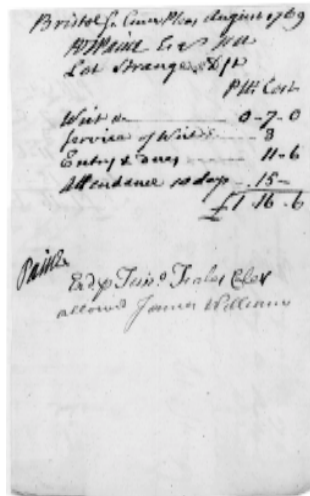 Bristol ss. Com̄n Pleas August 1769
RT Paine Esq
Lot Strange Dft
Plts Cost
Writ 0-7-0
Service of Writ 3
Entry & dues 11-6
Attendance 10 days 15-
£1.16.6
Paine
Ex'd p Timo Fales Cler
allowed James Williams